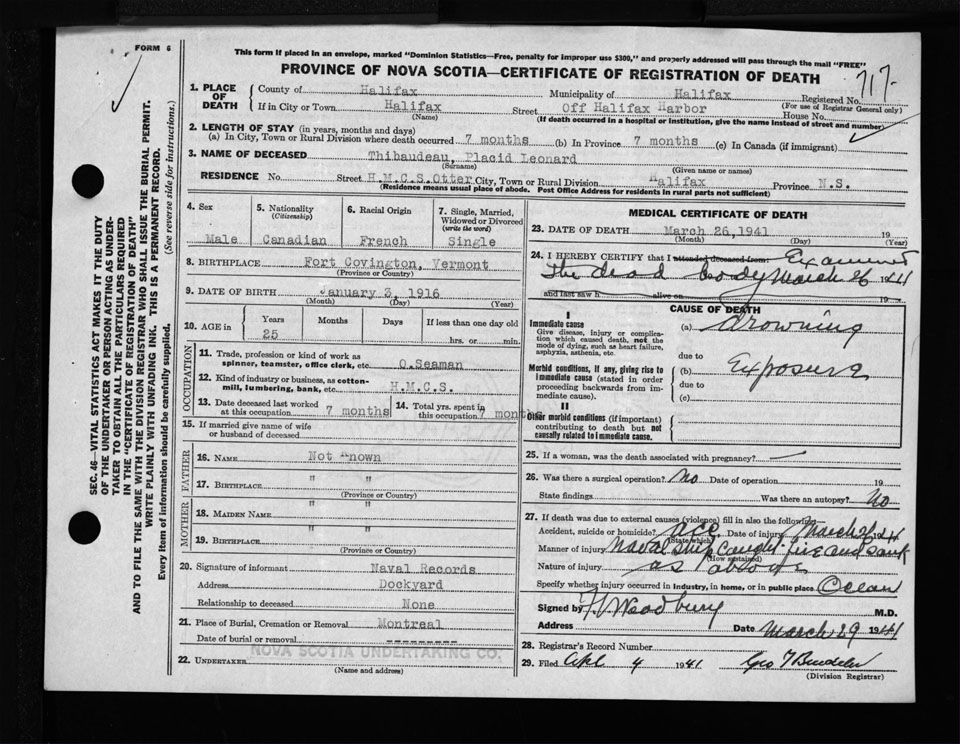 FORM 6
This form if placed in an envelope, marked "Dominion Statistics—Free, penalty for improper use $300," and properly addressed will pass through the mail "FREE"
PROVINCE OF NOVA SCOTIA—CERTIFICATE OF REGISTRATION OF DEATH
717-
1. PLACE OF DEATH { County of Halifax Municipality of Halifax Registered No.
(For use of Registrar General only)
If in City or Town Halifax Street Off Halifax Harbor House No.
(Name) (If death occurred in a hospital or institution, give the name instead of street and number)
2. LENGTH OF STAY (in years, months and days)
(a) In City, Town or Rural Division where death occurred 7 months (b) In Province 7 months (c) In Canada (if immigrant)
3. NAME OF DECEASED Thibaudeau, Placid Leonard
(Surname) (Given name or names)
RESIDENCE No. Street H.M.C.S.Otter City, Town or Rural Division Halifax Province N.S.
(Residence means usual place of abode. Post Office Address for residents in rural parts not sufficient)
4. Sex
Male
5. Nationality
(Citizenship)
Canadian
6. Racial Origin
French
7. Single, Married, Widowed or Divorced
(write the word)
Single
8. BIRTHPLACE Fort Covington, Vermont
(Province or Country)
9. DATE OF BIRTH January 3, 1916
(Month) (Day) (Year)
10. AGE in Years Months Days If less than one day old
25 hrs. or min.
OCCUPATION
11. Trade, profession or kind of work as
spinner, teamster, office clerk, etc. O.Seaman
12. Kind of industry or business, as cotton-
mill, lumbering, bank, etc. H.M.C.S.
13. Date deceased last worked
at this occupation 7 months
14. Total yrs. spent in
this occupation 7 months
15. If married give name of wife
or husband of deceased
FATHER
16. NAME Not nown
17. BIRTHPLACE " "
(Province or Country)
MOTHER
18. MAIDEN NAME " "
19. BIRTHPLACE " "
(Province or Country)
20. Signature of informant Naval Records
Address Dockyard
Relationship to deceased None
21. Place of Burial, Cremation or Removal Montreal
Date of burial or removal --------
22. UNDERTAKER NOVA SCOTIA UNDERTAKING CO.
(Name and address)
MEDICAL CERTIFICATE OF DEATH
23. DATE OF DEATH March 26,1941 19
(Month) (Day) (Year)
24. I HEREBY CERTIFY that I attended deceased from: Examined
The dead body March 26 1941
and last saw h alive on 19
CAUSE OF DEATH
I
Immediate cause
Give disease, injury or complication which caused death, not the mode of dying, such as heart failure, asphyxia, asthenia, etc.
(a) drowning
due to
Morbid conditions, if any, giving rise to immediate cause (stated in order proceeding backwards from immediate cause).
(b) Exposure
due to
(c)
II
Other morbid conditions (if important) contributing to death but not causally related to immediate cause.
25. If a woman, was the death associated with pregnancy? —
26. Was there a surgical operation? No Date of operation 19
State findings Was there an autopsy? No
27. If death due to external causes (violence) fill in also the following—
Accident, suicide or homicide? acc. Date of injury March 26 1941
(State which)
Manner of injury Naval ship caught fire and sank
(How sustained)
Nature of injury as above
Specify whether injury occurred in industry, in home, or in public place Ocean
Signed by Woodbury M.D.
Address Date March 29 1941
28. Registrar's Record Number
29. Filed Apl 4 1941 Geo
(Division Registrar)
SEC. 46—VITAL STATISTICS ACT MAKES IT THE DUTY
OF THE UNDERTAKER OR PERSON ACTING AS UNDER-
TAKER TO OBTAIN ALL THE PARTICULARS REQUIRED
IN THE "CERTIFICATE OF REGISTRATION OF DEATH"
AND TO FILE THE SAME WITH THE DIVISION REGISTRAR WHO SHALL ISSUE THE BURIAL PERMIT.
WRITE PLAINLY WITH UNFADING INK. THIS IS A PERMANENT RECORD.
Every item of information should be carefully supplied. (See reverse side for instructions.)